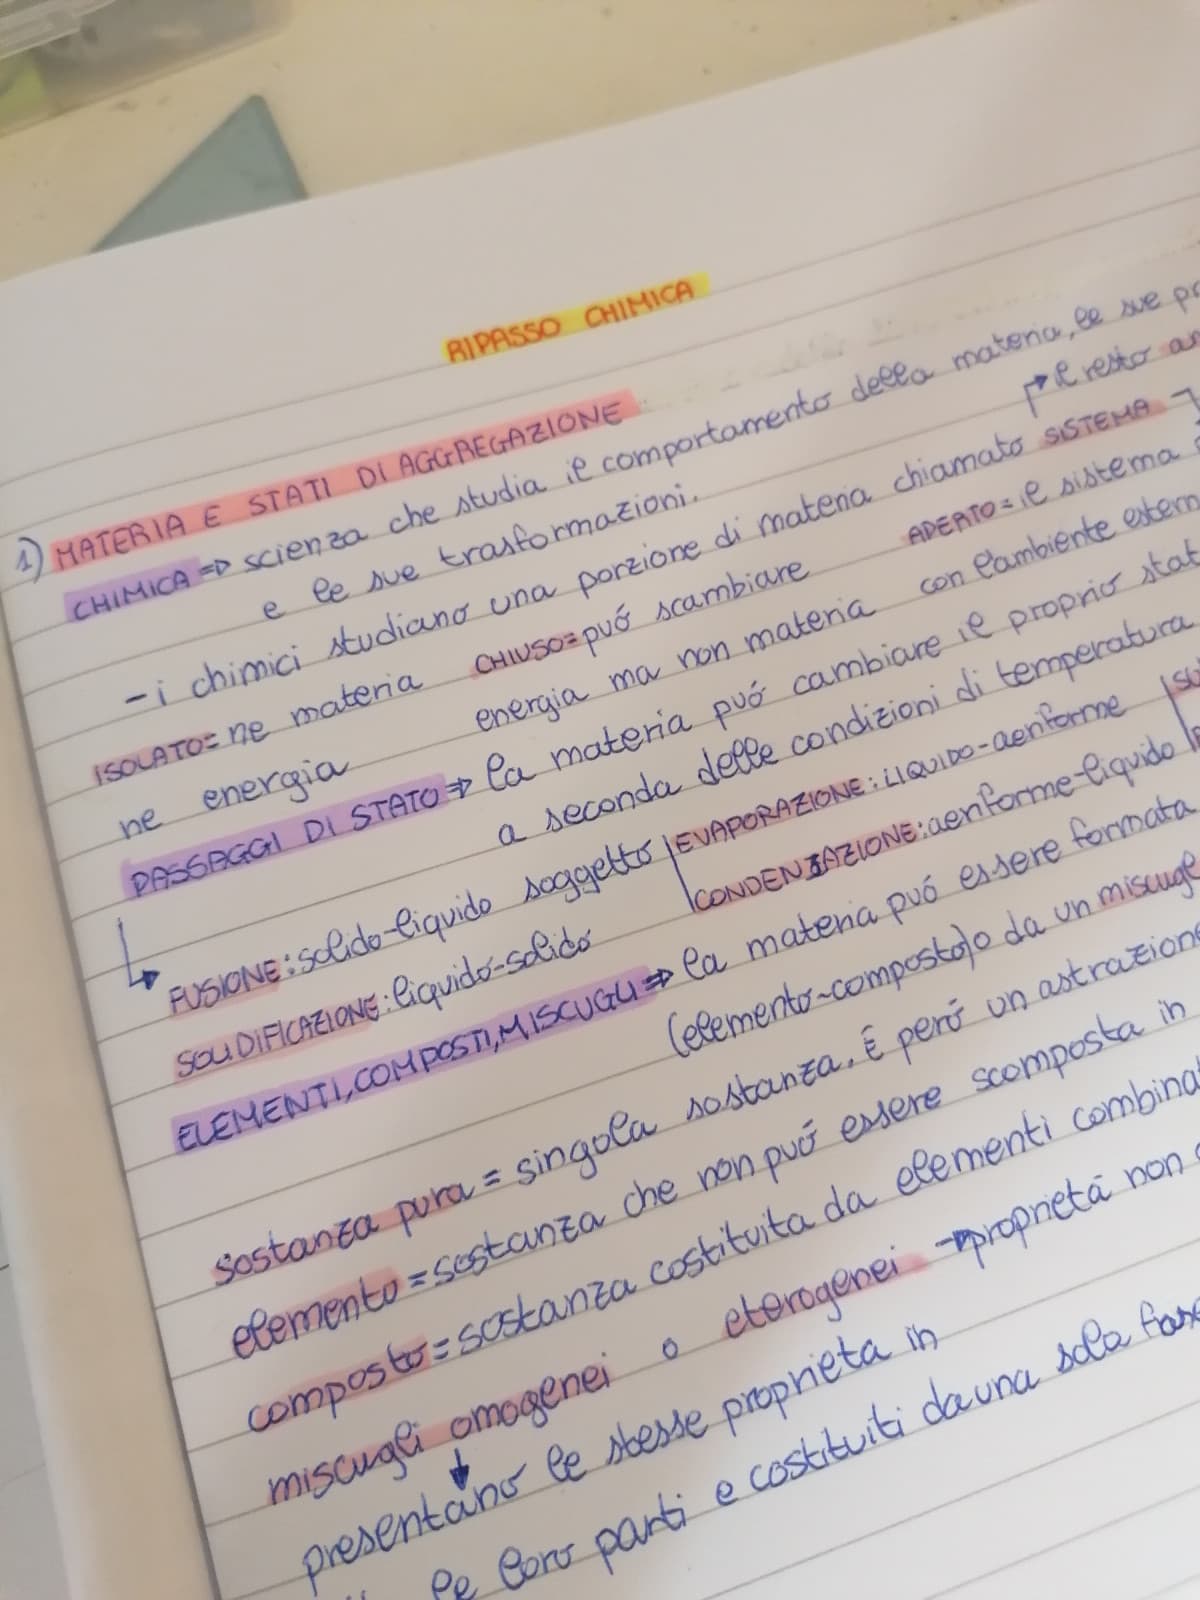 RIPASSO CHIMICA
1) MATERIA E STATI DI AGGREGAZIONE
CHIMICA => scienza che studia il comportamento della materia, le sue
e le sue trasformazioni.
il resto
- i chimici studiano una porzione di materia chiamato SISTEMA
ISOLATO= ne materia CHIUSO= può scambiare APERTO= il sistema
ne energia energia ma non materia con l'ambiente
PASSAGGI DI STATO => la materia può cambiare il proprio
a seconda delle condizioni di temperatura
soggetto EVAPORAZIONE: LIQUIDO-aeriforme
FUSIONE: solido-liquido CONDENSAZIONE: aeriforme-liquido
SOLIDIFICAZIONE: liquido-solido
ELEMENTI, COMPOSTI, MISCUGLI => la materia può essere formata
(elemento-composto) o da un
sostanza pura = singola sostanza. É però un astrazione
elemento = sostanza che non può essere scomposta in
composto = sostanza costituita da elementi
miscugli omogenei o eterogenei → proprietà non
presentano le stesse proprieta in
le loro parti e costituiti da una sola